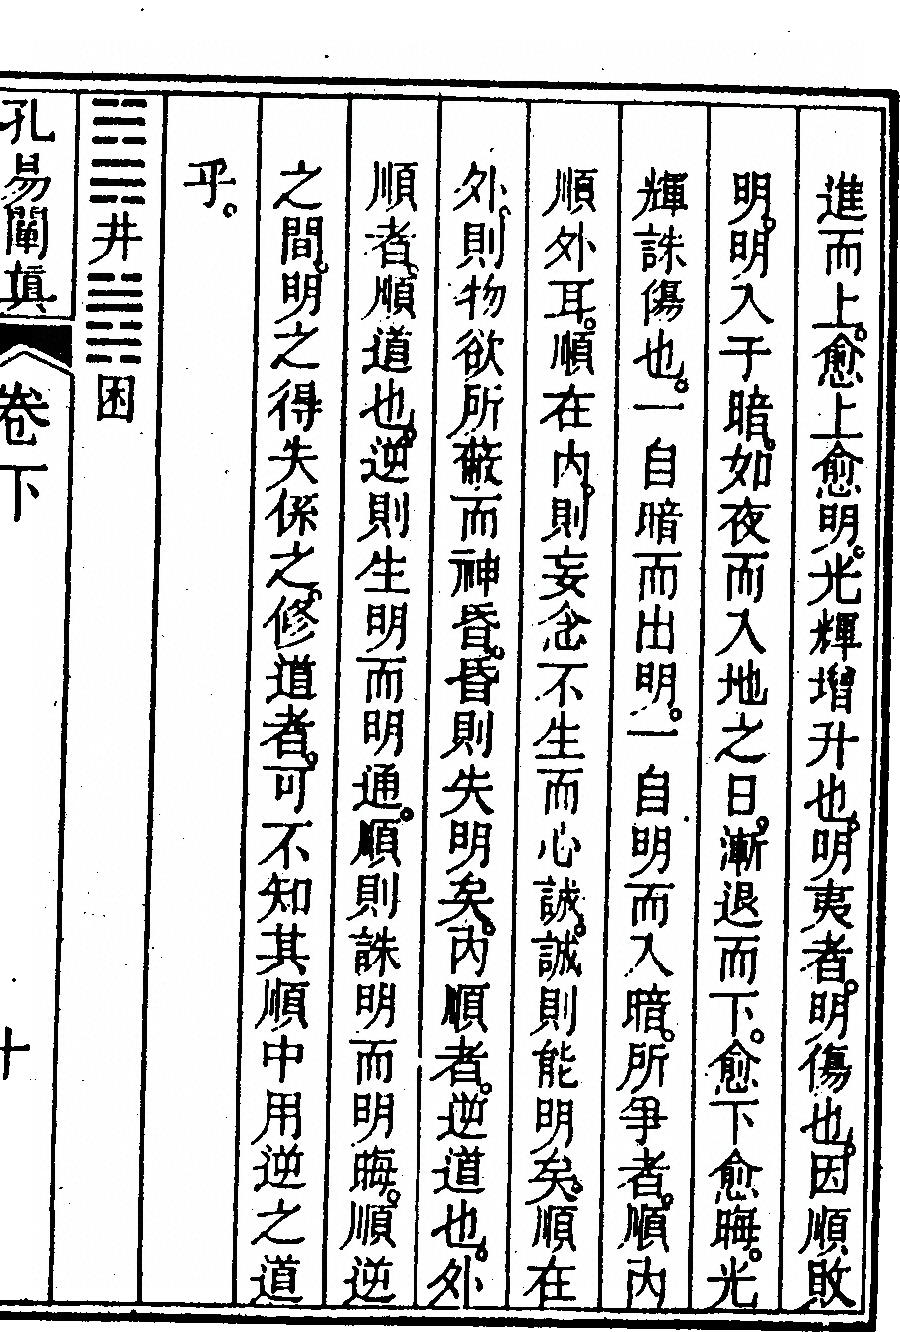 進而上。愈上愈明。光輝增升也。明夷者。明傷也。因順敗
明。明入于暗。如夜而入地之日。漸退而下。愈下愈晦。光
輝誅傷也。一自暗而出明。一自明而入暗。所爭者。順內
順外耳。順在內。則妄念不生而心誠。誠則能明矣。順在
外。則物欲所蔽而神昏。昏則失明矣。內順者。逆道也。外
順者。順道也。逆則生明而明通。順則誅明而明晦。順逆
之間。明之得失係之。修道者。可不知其順中用逆之道
乎。
䷯井䷮困
孔易闡真
卷下
十